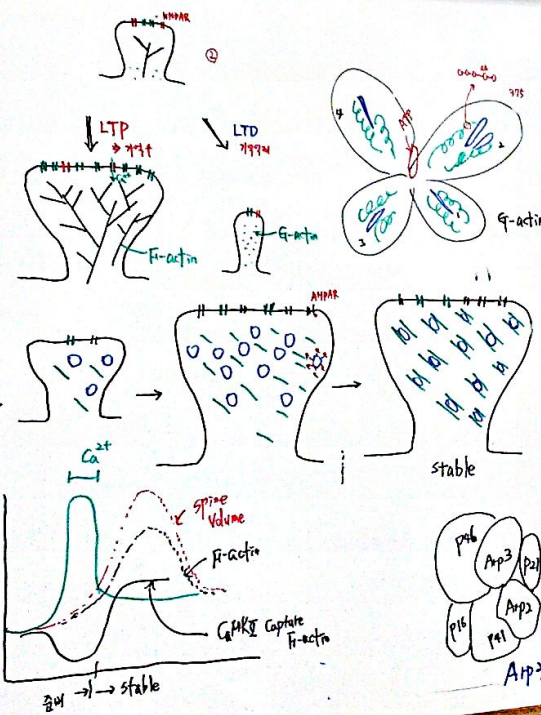 AMPAR
②
LTP
LTD
F-actin
G-actin
ATP
375
4
2
3
1
G-actin
AMPAR
stable
Ca²⁺
spine
volume
F-actin
CaMKⅡ capture
F-actin
준비 → | → stable
P40
Arp3
P21
Arp2
P16
P41
Arp2